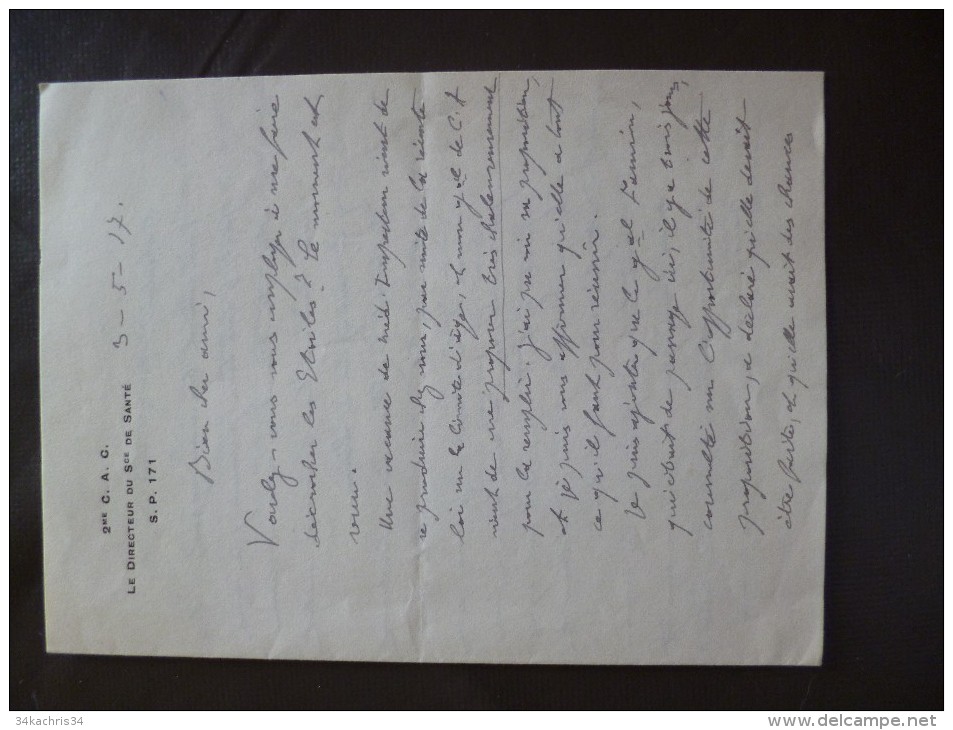 2ME C. A. C.
LE DIRECTEUR DU SCE DE SANTÉ
S. P. 171
3 - 5 - 17.
Bien cher ami,
Voulez-vous vous employer à me faire
décrocher les étoiles ? Le moment est
venu.
Une vacance de méd. Inspecteur vient de
se produire chez nous, par suite de la récente
loi sur la limite d'âge, et mon gal de C. A
vient de me proposer très chaleureusement
pour la remplir. J'ai pu voir sa proposition,
et je puis vous affirmer qu'elle a tout
ce qu'il faut pour réussir.
Je puis ajouter que le gal
qui était de passage ici, il y a trois jours,
consulté sur l'opportunité de cette
proposition, a déclaré qu'elle devait
être faite, et qu'elle avait des chances
34kachris34
www.delcampe.net